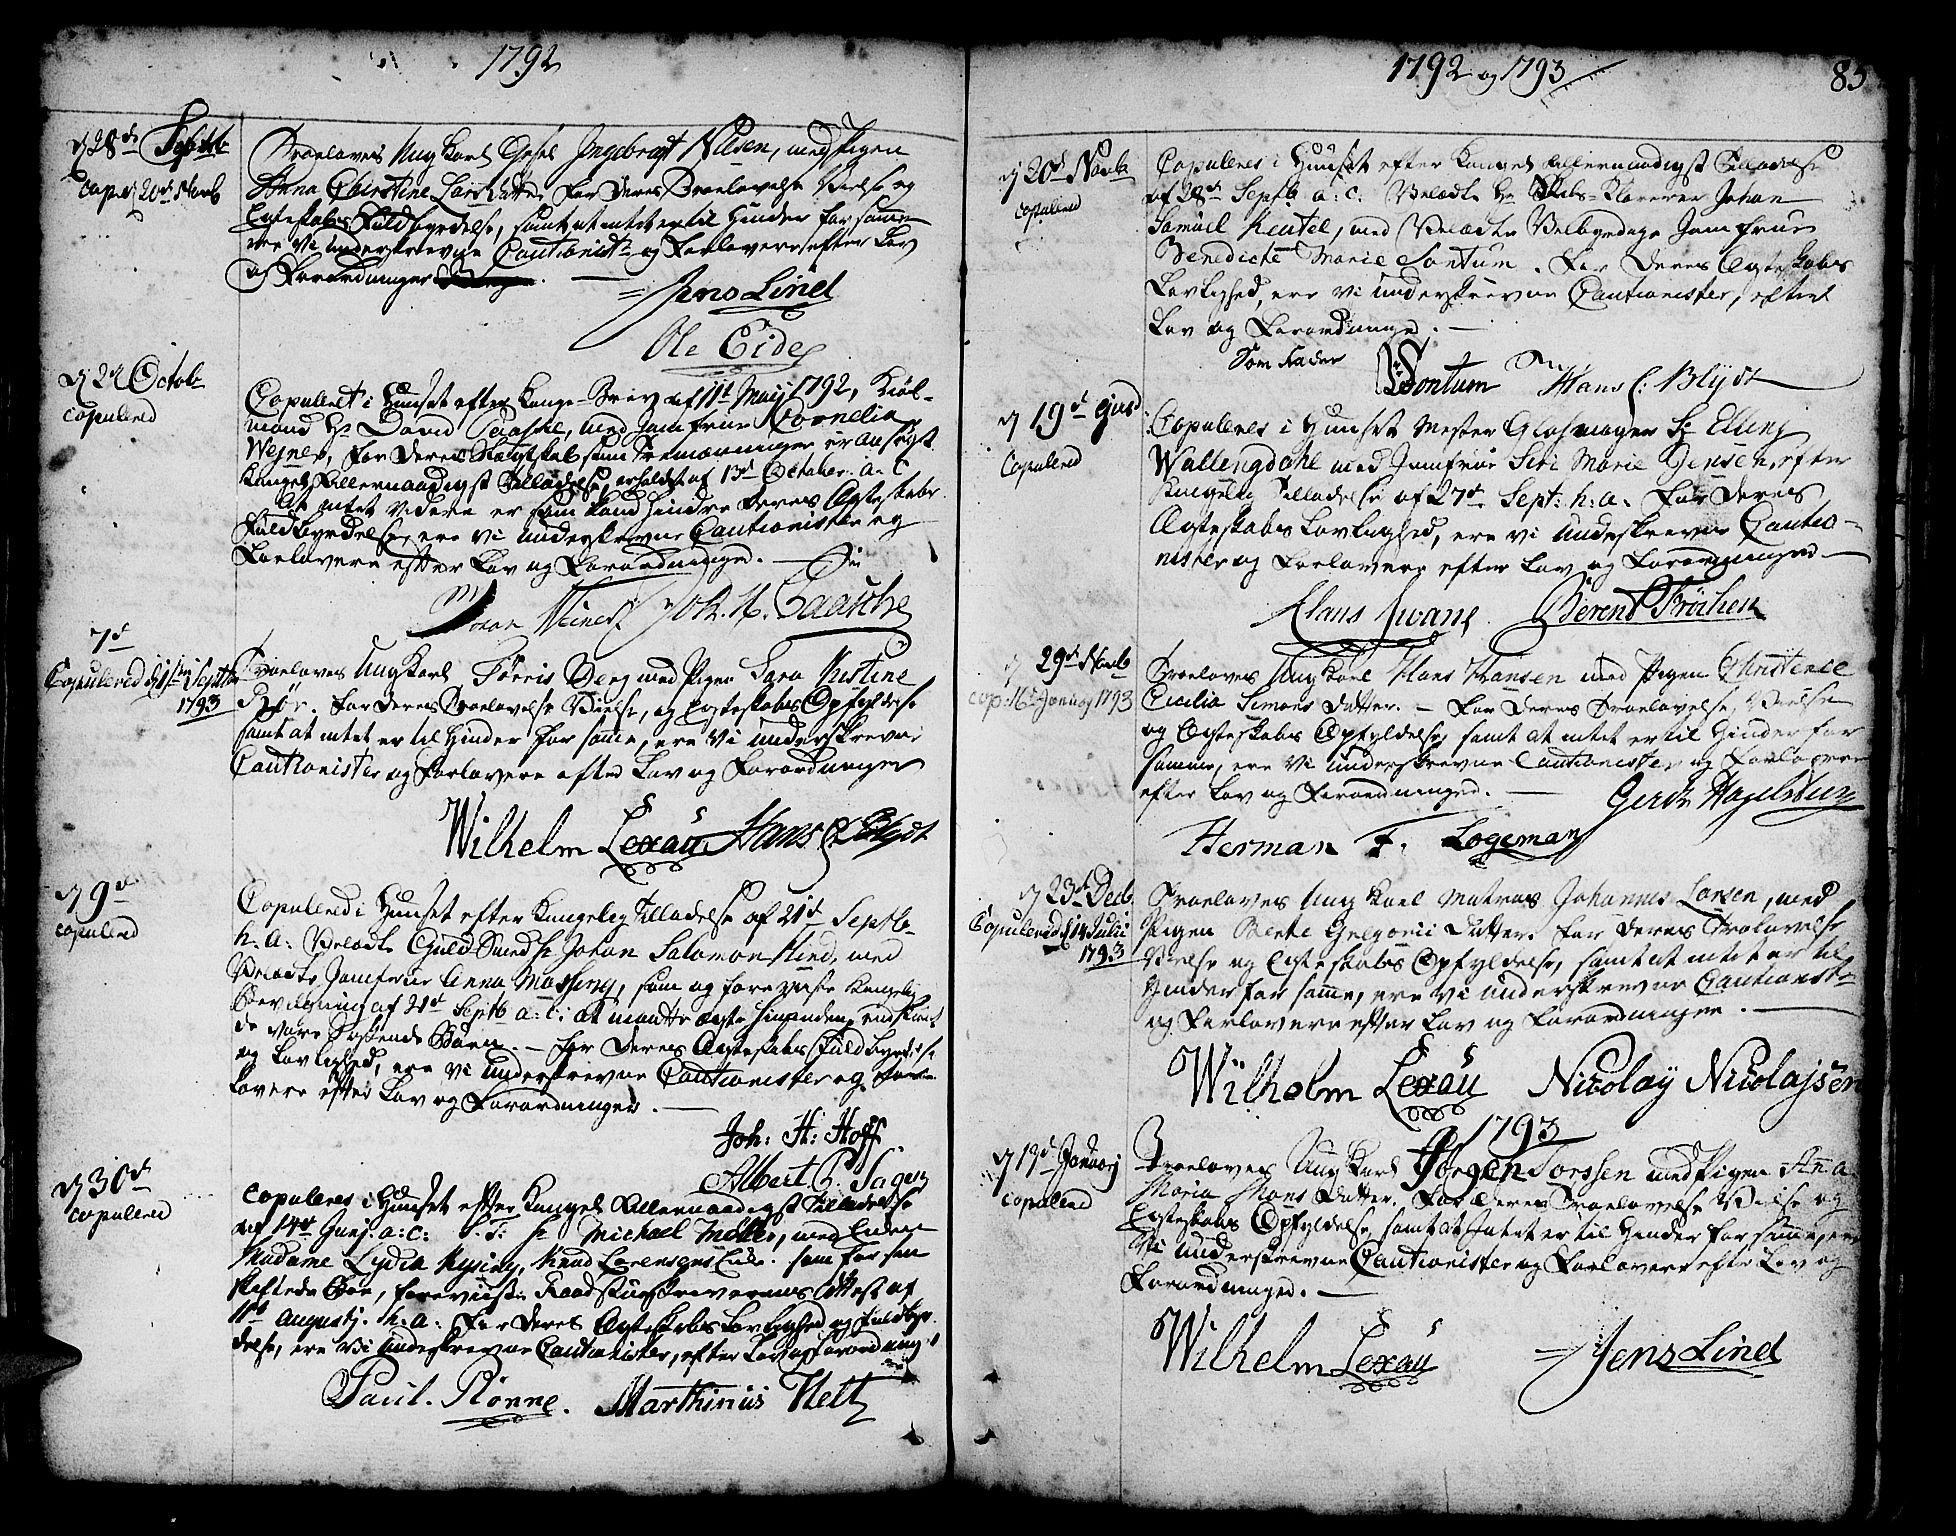 1792
d 28de Septb
cop: d 20d Novb
Troeloves Ung Karl Gesel Jngebregt Nilsen, med Pigen
Anna Christine Larsdatter. For deres Troelovelse Vielse og
Egteskabs Fuldbyrdelse, samt at intet er til Hinder for samme
ere Vi underskrevne Cautionister og Forlovere efter Lov
og Forordninger
Jens Lind
Ole Eide
d 24 Octob
copulered
Copuleret i Huuset efter Konge-Brev af 11t May 1792, Kiøb-
mand Hr David Paaske, med Jomfrue Kornelia
Wejner, for deres Ægteskab som er ansøgt
Kongel. Allernaadigst Tilladelse, erholdet af 13d October a: c
At intet videre er som kand hindre deres Ægteskabs
Fuldbyrdelse, ere vi underskrevne Cautionister og
Forlovere efter Lov og Forordninger.
Joh. H. Paasche
7d
Copulered d 1 Septbr
1793
Troeloves Ung Karl Tørris Berg med Pigen Sara Kristine
Bør. For deres Troelovelse Vielse, og Egteskabs Opfyldelse
samt at intet er til Hinder for samme, ere Vi underskrevne
Cautionister og Forlovere efter Lov og Forordninger
Wilhelm Lexau Hans C Blydt
d 9d
copulered
Copulered i Huuset efter Kongelig Tilladelse af 21d Septb
h. a: Velædle Guld-Smed Sr Johan Salomon Hind, med
Velædle Jomfrue Anna Massing, som og foreviiste Kongelig
Bevilgning af 21d Septb a: c: at maatte ægte hinanden, endskiønt
de vare Sødskende Børn. — For deres Ægteskabs Fuldbyrdelse
og Lovlighed, ere vi underskrevne Cautionister og For-
lovere efter Lov og Forordninger. —
Joh: H: Hoff
Albert B. Sagen
d 30d
copulered
Copuleres i Huuset efter Kongel. Allernaadigst Tilladelse
af 14d Junj. a: c: S: T: Sr Michael Møller, med Enken
Madame Lydia Rysing, Knud Lorensens Enke. som for sin
skiftede Boe, foreviiste Raadstueskriverens Attest af
11te Augustj. h. a: For deres Ægteskabs Lovlighed og Fuldbyr-
delse, ere Vi underskrevne Cautionister, efter Lov og Forordning
Paul. Rønne. Marthinus Heltz
1792 og 1793
85
d 20d Novb
copulered
Copuleres i Huuset efter Kongel. Allernaadigst Tilladelse
af 28d Septb a: c. Velædle Hr Skibs-Klarerer Johan
Samuel Keutel, med Velædle Velbyrdige Jomfrue
Benedicte Marie Sontum. For deres Ægteskabs
Lovlighed, ere Vi underskrevne Cautionister, efter
Lov og Forordninger. —
Som Fader
Sontum Hans C: Blydt
d 19d
Copulered
Copuleres i Huuset Mester Glasmager Sr Elling
Wallengdahl med Jomfrue Siri Marie Jensen, efter
Kongelig Tilladelse af 27d Sept: h: a. For deres
Ægteskabs Lovlighed, ere vi underskrevne Cautio-
nister og Forlovere efter Lov og Forordninger —
Berent Frøchen
d 29d Novb
cop: 16 Januarj 1793
Troelovres Ung Karl Hans Hansen med Pigen Christense
Cicilia Simons Datter. — For deres Troelovelse, Vielse
og Ægteskabs Opfyldelse, samt at intet er til Hinder for
samme, ere Vi underskrevne Cautionister og Forlovere
efter Lov og Forordninger. —
Gerdt Hagelsteen
Herman F. Logeman
d 23d Decb.
Copulered d 14 Julii
1793
Troeloves Ung Karl Matros Johannes Larsen, med
Pigen Berte Gregorii Datter. For deres Troelovelse
Vielse og Egteskabs Opfyldelse, samt at intet er til
Hinder for samme, ere Vi underskrevne Cautionister
og Forlovere efter Lov og Forordninger. —
Wilhelm Lexau Nicolay Nicolajsen
1793
d 13d Januarj
copulered
Troeloves Ung Karl Jørgen Torssen med Pigen Anna
Maria Mons Datter. For deres Troelovelse Vielse og
Egteskabs Opfyldelse, samt at Intet er til Hinder for samme, ere
Vi underskrevne Cautionister og Forlovere efter Lov og
Forordninger. —
Wilhelm Lexau Jens Lind